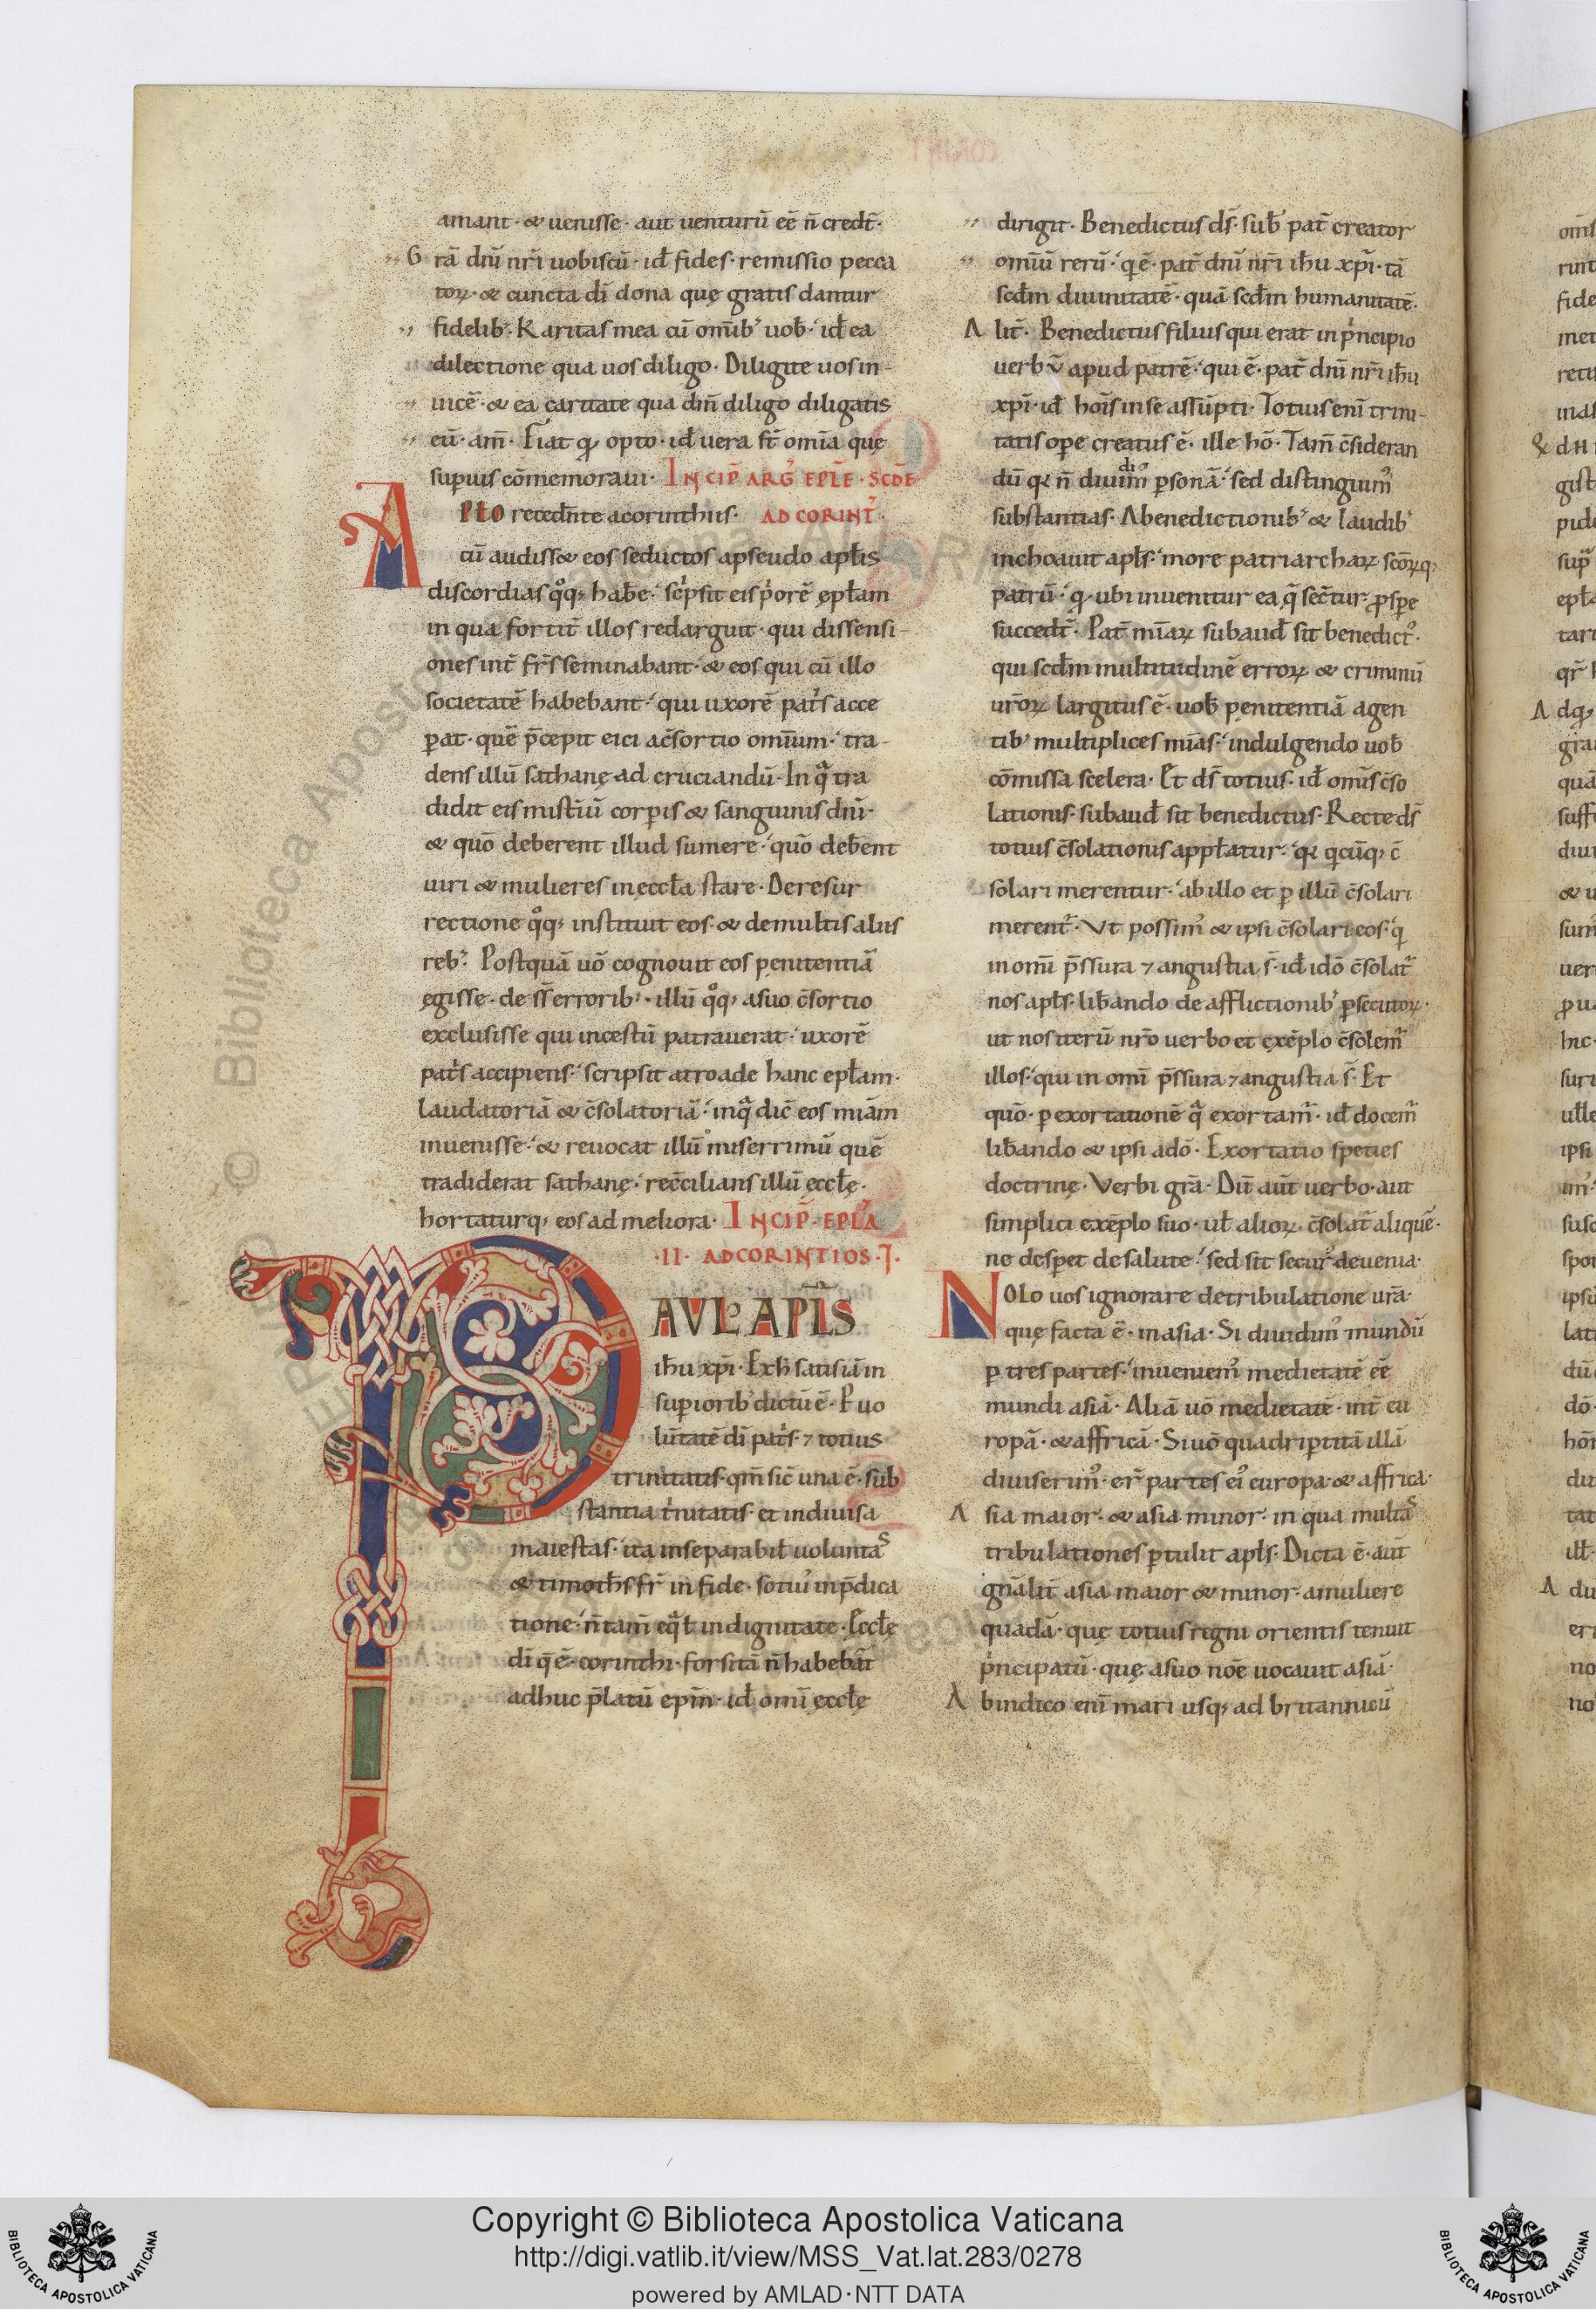 amant· & uenisse· aut uenturū eē n̄ credt̄·
G rā dnī nr̄i uobiscū· id̄ fides· remissio pecca
toꝝ· & cuncta dī dona quę gratis dantur
fidelib᾽· Karitas mea cū omīb᾽ uob̄· id̄ ea
dilectione qua uos diligo· Diligite uos in-
uicē· & ea caritate qua dm̄ diligo diligatis
eū· am̄· Fiat qđ opto· id̄ uera st̄ omīa quę
superius cōmemoraui· INCIP̄ ARG᾽ EPL̄E· SCDE
APŁO recedn̄te a corinthiis· AD CORINT᾽·
cū audiss& eos seductos a pseudo apl̄is
discordias qͦq; hab̄e· scͥpsit eis pͥorē epl̄am
in qua fortit̄ illos redarguit· qui dissensi-
ones int̄ fr̄s seminabant· & eos qui cū illo
societatē habebant· qui uxorē patͥs acce
ꝑat· quē p̄cepit eici a c̄sortio omīum· tra-
dens illū sathanę ad cruciandū· In qᵃ tra
didit eis mist̄iū corꝑis & sanguinis dnī·
& quō deberent illud sumere· quō deb̄ent
uiri & mulieres in ęccl̄a stare· De resur
rectione qͦq; instituit eos· & de multis aliis
reb᾽· Postquā uō cognouit eos penitentiā
ęgisse· de ss̄ errorib᾽· illū qͦq; a suo c̄sortio
exclusisse qui incestū patrauerat· uxorē
patͥs accipiens· scripsit a troade hanc epl̄am·
laudatoriā & c̄solatoriā· in qᵃ dic̄ eos mīam
inuenisse· & reuocat illū miserrimū quē
tradiderat sathanę· rec̄cilians illū ęccl̄ę·
hortaturq; eos ad meliora· INCIP̄· EPL̄A
·II· AD CORINTIOS·I·
PAVL᾽ APL̄S
ih̄u xpī· Exh̄ satis iā in
superiorib᾽ dictū ē· P uo
lūtatē dī patͥs· ⁊ totius
trinitatis· qm̄ sic̄ una ē· sub
stantia tͥnitatis· et indiuisa
maiestas· ita inseparabil̄ uoluntas
& timoth̄s fr̄ in fide· sotiu᾽ in p̄dica
tione· n̄ tam̄ eqᵃl̄ in dignitate· Ęccl̄ę
dī q̄ ē corinthi· forsitā n̄ habebāt
adhuc p̄latū epm̄· id̄ omī ęccl̄ę
dirigit· Benedictus ds̄· sub̄ pat̄ creator
omīū rerū· qͥ ē· pat̄ dnī nr̄i ih̄u xpī· tā
scd̄m diuinitatē· quā scd̄m humanitatē·
A lit̄· Benedictus filius qui erat in pͥncipio
uerbū apud patrē· qui ē· pat̄ dnī nr̄i ih̄u
xpī· id̄ hoīs in se assūpti· Totius enī trini-
tatis oꝑe creatus ē· ille hō· Tam̄ c̄sideran
dū qͥ n̄ diuidim᾽ ꝑsonā· sed distinguim᾽
substantias· A benedictionib᾽ & laudib᾽
inchoauit apl̄s· more patriarchaꝝ scōꝝq;
patrū· qđ ubi inuenitur ea q̄ sec̄tur ꝓsꝑe
succedt̄· Pat̄ mīaꝝ subaud̄ sit benedict᾽·
qui scd̄m multitudinē erroꝝ & criminū
ur̄oꝝ largitus ē· uob̄ penitentiā agen
tib᾽ multiplices mīas· indulgendo uob̄
cōmissa scelera· Et ds̄ totius· id̄ omīs c̄so
lationis· subaud̄ sit benedictus· Recte ds̄
totius c̄solationis appl̄atur· qͥ qͥcūq; c̄
solari merentur· ab illo et ꝑ illū c̄solari
merent᾽· Vt possim᾽ & ipsi c̄solari eos· qͥ
in omī p̄ssura ⁊ angustia s̄· id̄ idō c̄solat᾽
nos apl̄s· lib̄ando de afflictionib᾽ ꝑsecutoꝝ·
ut nos iterū nr̄o uerbo et exēplo c̄solem᾽
illos· qui in omī p̄ssura ⁊ angustia s̄· Et
quō· ꝑ exortationē qᵃ exortam᾽· id̄ docem᾽
lib̄ando & ipsi a dō· Exortatio speties
doctrinę· Verbi grā· Dū aut̄ uerbo· aut
simplici exēplo suo· ul̄ alioꝝ c̄solat̄ aliquē·
ne desꝑet de salute· sed sit secur᾽ de uenia·
NOLO uos ignorare de tribulatione ur̄a·
quę facta ē· in asia· Si diuidim᾽ mundū
ꝑ tres partes· inueniem᾽ medietatē eē
mundi asiā· Aliā uō medietatē· int̄ eu
ropā· & affricā· Si uō quadriꝑtitā illā
diuiserim᾽· er̄ partes ei᾽ europa· & affrica·
A sia maior· & asia minor· in qua multas
tribulationes ꝑtulit apl̄s· Dicta ē· aut̄
gn̄alit̄ asia maior & minor· a muliere
quadā· quę totius regni orientis tenuit
pͥncipatū· quę a suo nōe uocauit asiā·
A b indico enī mari usq; ad britannicū
Copyright © Biblioteca Apostolica Vaticana
http://digi.vatlib.it/view/MSS_Vat.lat.283/0278
powered by AMLAD·NTT DATA
BIBLIOTECA APOSTOLICA VATICANA
BIBLIOTECA APOSTOLICA VATICANA